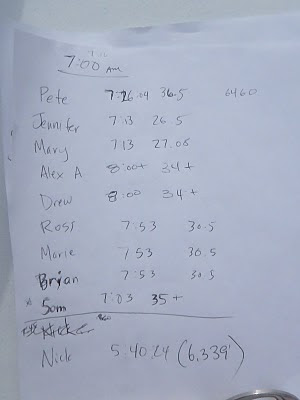 7:00 AM
Pete 7:26.04 36.5 6460
Jennifer 7:13 26.5
Mary 7:13 27.08
Alex A 8:00+ 34+
Drew 8:00 34+
Ross 7:53 30.5
Marie 7:53 30.5
Brian 7:53 30.5
Som 7:03 35+
Nick 5:40.24 (6,339')